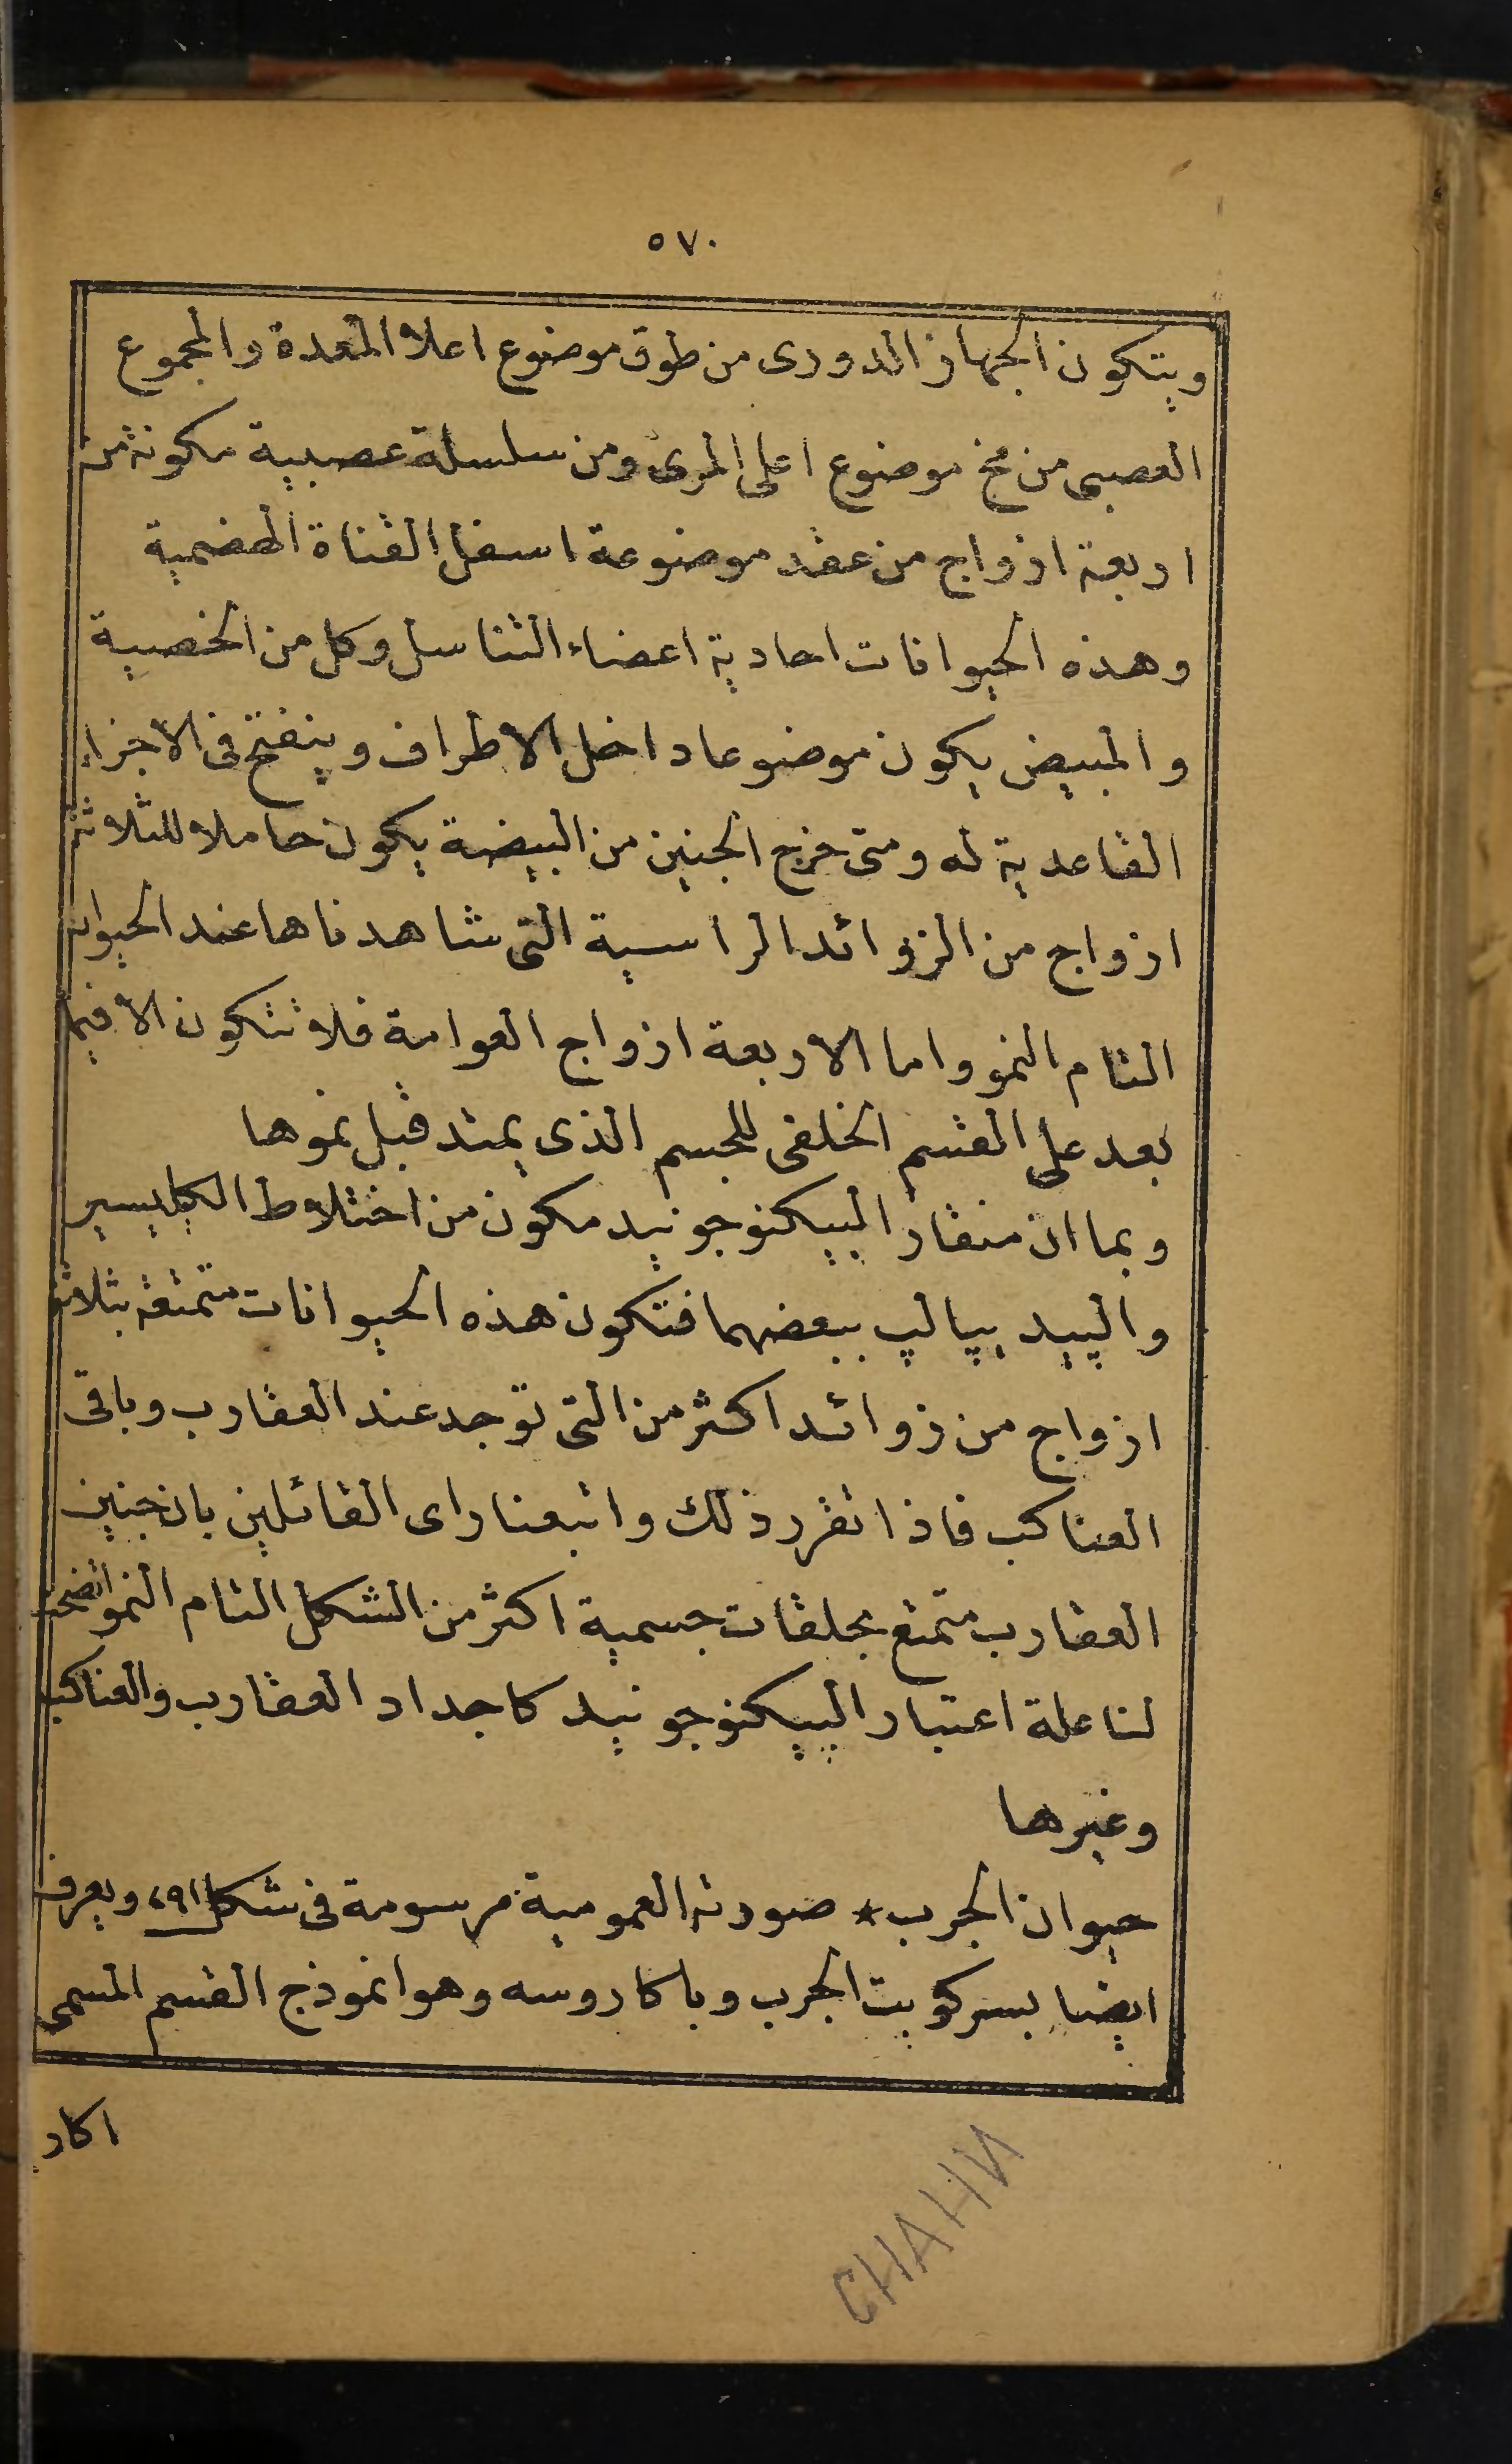 ٥٧٠
ويتكون الجهاز الدورى من طوق موضوع اعلا المعدة والمجموع
العصبى من مخ موضوع اعلى المرئ ومن سلسلة عصبية مكونة من
اربعة ازواج من عقد موضوعة اسفل القناة الهضمية
وهذه الحيوانات احادية اعضاء التناسل وكل من الخصية
والمبيض يكون موضوعا داخل الاطراف وينفتح فى الاجزاء
القاعدية له ومتى خرج الجنين من البيضة يكون حاملا للثلاثة
ازواج من الزوائد الراسية التى شاهدناها عند الحيوان
التام النمو واما الاربعة ازواج العوامة فلا تتكون الا فيما
بعد على القسم الخلفى للجسم الذى يمتد قبل نموها
وبما ان منقار البيكنوجونيد مكون من اختلاط الكليسير
والپيديپالپ ببعضهما فتكون هذه الحيوانات متمتعة بثلاثة
ازواج من زوائد اكثر من التى توجد عند العقارب وباقى
العناكب فاذا تقرر ذلك واتبعنا راى القائلين بان جنين
العقارب متمتع بحلقات جسمية اكثر من الشكل التام النمو اتضحت
لنا علة اعتبار الپيكنوجونيد كاجداد العقارب والعناكب
وغيرها
حيوان الجرب * صورته العمومية مرسومة فى شكل ٢٩١ ويعرف
ايضا بسركوبت الجرب وبا كاروسه وهو انموذج القسم المسمى
اكار
CHAHN